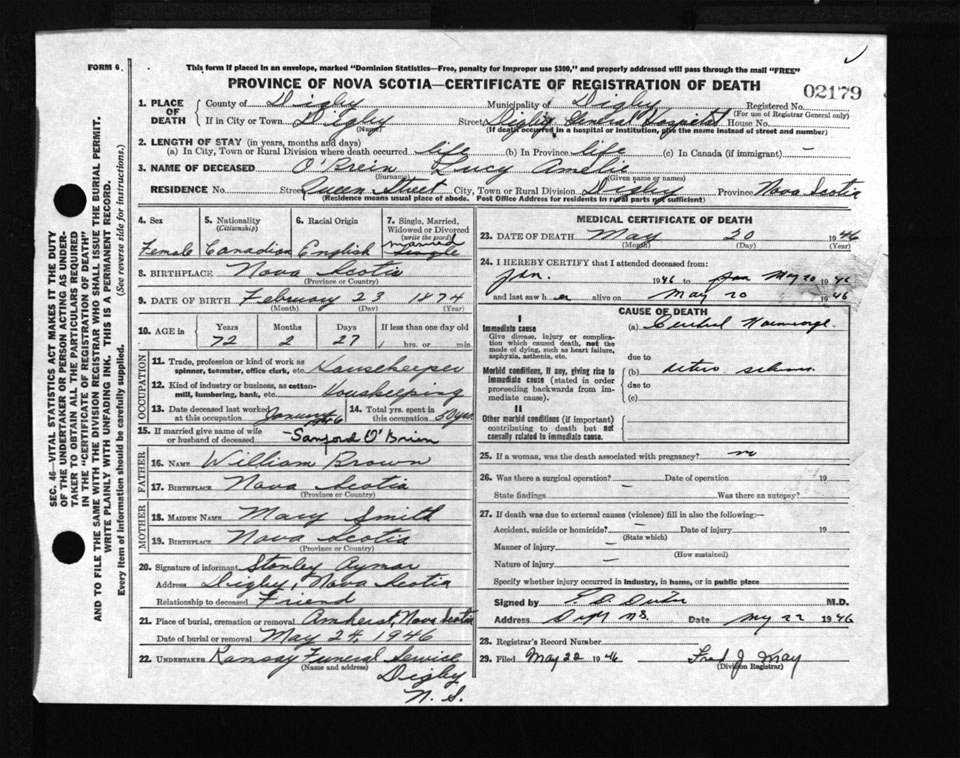 FORM 6.
This form if placed in an envelope, marked "Dominion Statistics—Free, penalty for improper use $300," and properly addressed will pass through the mail "FREE"
PROVINCE OF NOVA SCOTIA—CERTIFICATE OF REGISTRATION OF DEATH
02179
1. PLACE OF DEATH
County of Digby Municipality of Digby Registered No.
(For use of Registrar General only)
If in City or Town Digby Street Digby General Hospital House No.
(Name) (If death occurred in a hospital or institution, give the name instead of street and number)
2. LENGTH OF STAY (in years, months and days)
(a) In City, Town or Rural Division where death occurred life (b) In Province life (c) In Canada (if immigrant) —
3. NAME OF DECEASED O'Brein Lucy Amelie
(Surname) (Given name or names)
RESIDENCE No. Street Queen Street City, Town or Rural Division Digby Province Nova Scotia
(Residence means usual place of abode. Post Office Address for residents in rural parts not sufficient)
SEC. 46—VITAL STATISTICS ACT MAKES IT THE DUTY
OF THE UNDERTAKER OR PERSON ACTING AS UNDER-
TAKER TO OBTAIN ALL THE PARTICULARS REQUIRED
IN THE "CERTIFICATE OF REGISTRATION OF DEATH"
AND TO FILE THE SAME WITH THE DIVISION REGISTRAR WHO SHALL ISSUE THE BURIAL PERMIT.
WRITE PLAINLY WITH UNFADING INK. THIS IS A PERMANENT RECORD.
Every item of information should be carefully supplied. (See reverse side for instructions.)
4. Sex
Female
5. Nationality
(Citizenship)
Canadian
6. Racial Origin
English
7. Single, Married, Widowed or Divorced
(write the word)
married
Single
8. BIRTHPLACE Nova Scotia
(Province or Country)
9. DATE OF BIRTH February 23 1874
(Month) (Day) (Year)
10. AGE in
Years Months Days If less than one day old
72 2 27 hrs. or min.
OCCUPATION
11. Trade, profession or kind of work as spinner, teamster, office clerk, etc. Housekeeper
12. Kind of industry or business, as cotton-mill, lumbering, bank, etc. Houskeeping
13. Date deceased last worked at this occupation January 1946
14. Total yrs. spent in this occupation 50 yrs
15. If married give name of wife or husband of deceased —Sanford O'Brien
FATHER
16. NAME William Brown
17. BIRTHPLACE Nova Scotia
(Province or Country)
MOTHER
18. MAIDEN NAME Mary Smith
19. BIRTHPLACE Nova Scotia
(Province or Country)
20. Signature of informant Stanley Aymar
Address Digby, Nova Scotia
Relationship to deceased Friend
21. Place of burial, cremation or removal Amherst, Nova Scotia
Date of burial or removal May 24, 1946
22. UNDERTAKER Ramsay Funeral Service
(Name and address)
Digby
N. S.
MEDICAL CERTIFICATE OF DEATH
23. DATE OF DEATH May 20 1946
(Month) (Day) (Year)
24. I HEREBY CERTIFY that I attended deceased from:
Jan. 1946 to May 20 1946
and last saw her alive on May 20 1946
CAUSE OF DEATH
I
Immediate cause
Give disease, injury or complication which caused death, not the mode of dying, such as heart failure, asphyxia, asthenia, etc.
(a)
due to
Morbid conditions, if any, giving rise to immediate cause (stated in order proceeding backwards from immediate cause).
(b)
due to
(c)
II
Other morbid conditions (if important) contributing to death but not causally related to immediate cause.
25. If a woman, was the death associated with pregnancy? no
26. Was there a surgical operation? — Date of operation 19
State findings Was there an autopsy?
27. If death was due to external causes (violence) fill in also the following:—
Accident, suicide or homicide? — Date of injury 19
(State which)
Manner of injury —
(How sustained)
Nature of injury —
Specify whether injury occurred in industry, in home, or in public place
Signed by M.D.
Address N.S. Date May 22 1946
28. Registrar's Record Number
29. Filed May 22 1946 Fred J. May
(Division Registrar)